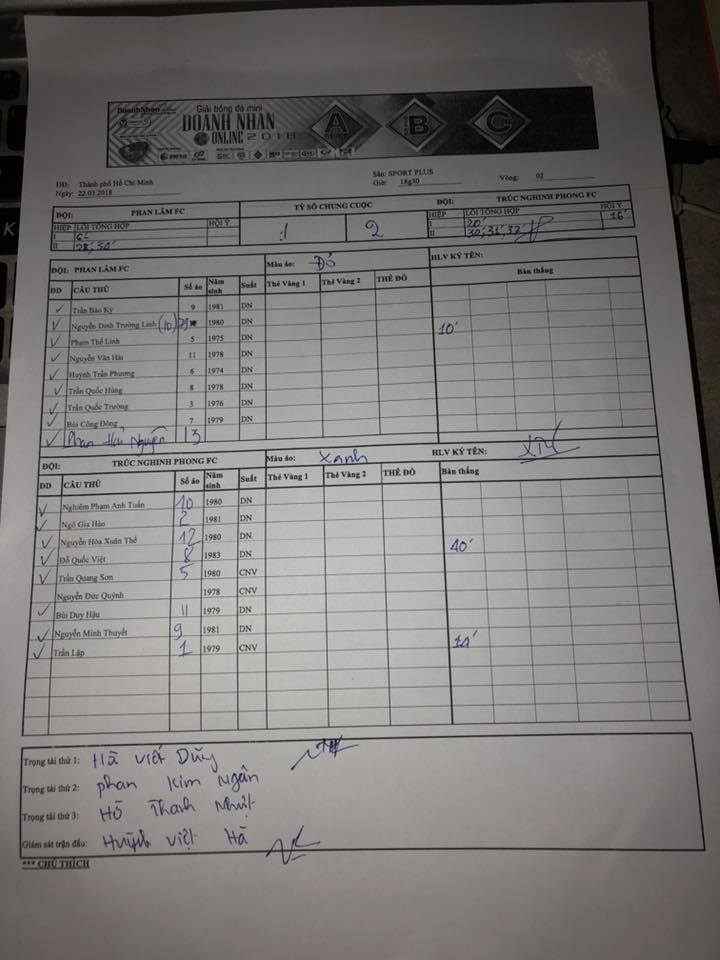 DoanhNhân
Giải bóng đá mini
DOANH NHÂN
ONLINE 2018
A
B
C
ĐĐ: Thành phố Hồ Chí Minh Sân: SPORT PLUS
Ngày: 22.03.2018 Giờ: 18g30 Vòng: 02
ĐỘI: PHAN LÂM FC TỶ SỐ CHUNG CUỘC ĐỘI: TRÚC NGHINH PHONG FC
HIỆP LỖI TỔNG HỢP HỘI Ý 1 2 HIỆP LỖI TỔNG HỢP HỘI Ý
I 6' I 20' 16'
II 28', 30' II 30', 31', 32'
ĐỘI: PHAN LÂM FC Màu áo: Đỏ HLV KÝ TÊN:
ĐD CẦU THỦ Số áo Năm sinh Suất Thẻ Vàng 1 Thẻ Vàng 2 THẺ ĐỎ Bàn thắng
✓ Trần Bảo Kỳ 9 1981 DN
✓ Nguyễn Đình Trường Linh (10) 1980 DN 10'
✓ Phạm Thế Linh 5 1975 DN
✓ Nguyễn Văn Hải 11 1978 DN
✓ Huỳnh Trần Phương 6 1974 DN
✓ Trần Quốc Hùng 8 1978 DN
✓ Trần Quốc Trường 3 1976 DN
✓ Bùi Công Đông 7 1979 DN
✓ Phan Nguyễn 13
ĐỘI: TRÚC NGHINH PHONG FC Màu áo: Xanh HLV KÝ TÊN:
ĐD CẦU THỦ Số áo Năm sinh Suất Thẻ Vàng 1 Thẻ Vàng 2 THẺ ĐỎ Bàn thắng
✓ Nghiêm Phạm Anh Tuấn 10 1980 DN
✓ Ngô Gia Hào 2 1981 DN
✓ Nguyễn Hòa Xuân Thế 12 1980 DN
✓ Đỗ Quốc Việt 8 1983 DN 40'
✓ Trần Quang Sơn 5 1980 CNV
Nguyễn Đức Quỳnh 1978 CNV
✓ Bùi Duy Hậu 11 1979 DN
✓ Nguyễn Minh Thuyết 9 1981 DN
✓ Trần Lập 1 1979 CNV
Trọng tài thứ 1: Hà Viết Dũy
Trọng tài thứ 2: phan Kim Ngân
Trọng tài thứ 3: Hồ Thanh Nhựt
Giám sát trận đấu: Huỳnh Việt Hà
*** CHÚ THÍCH